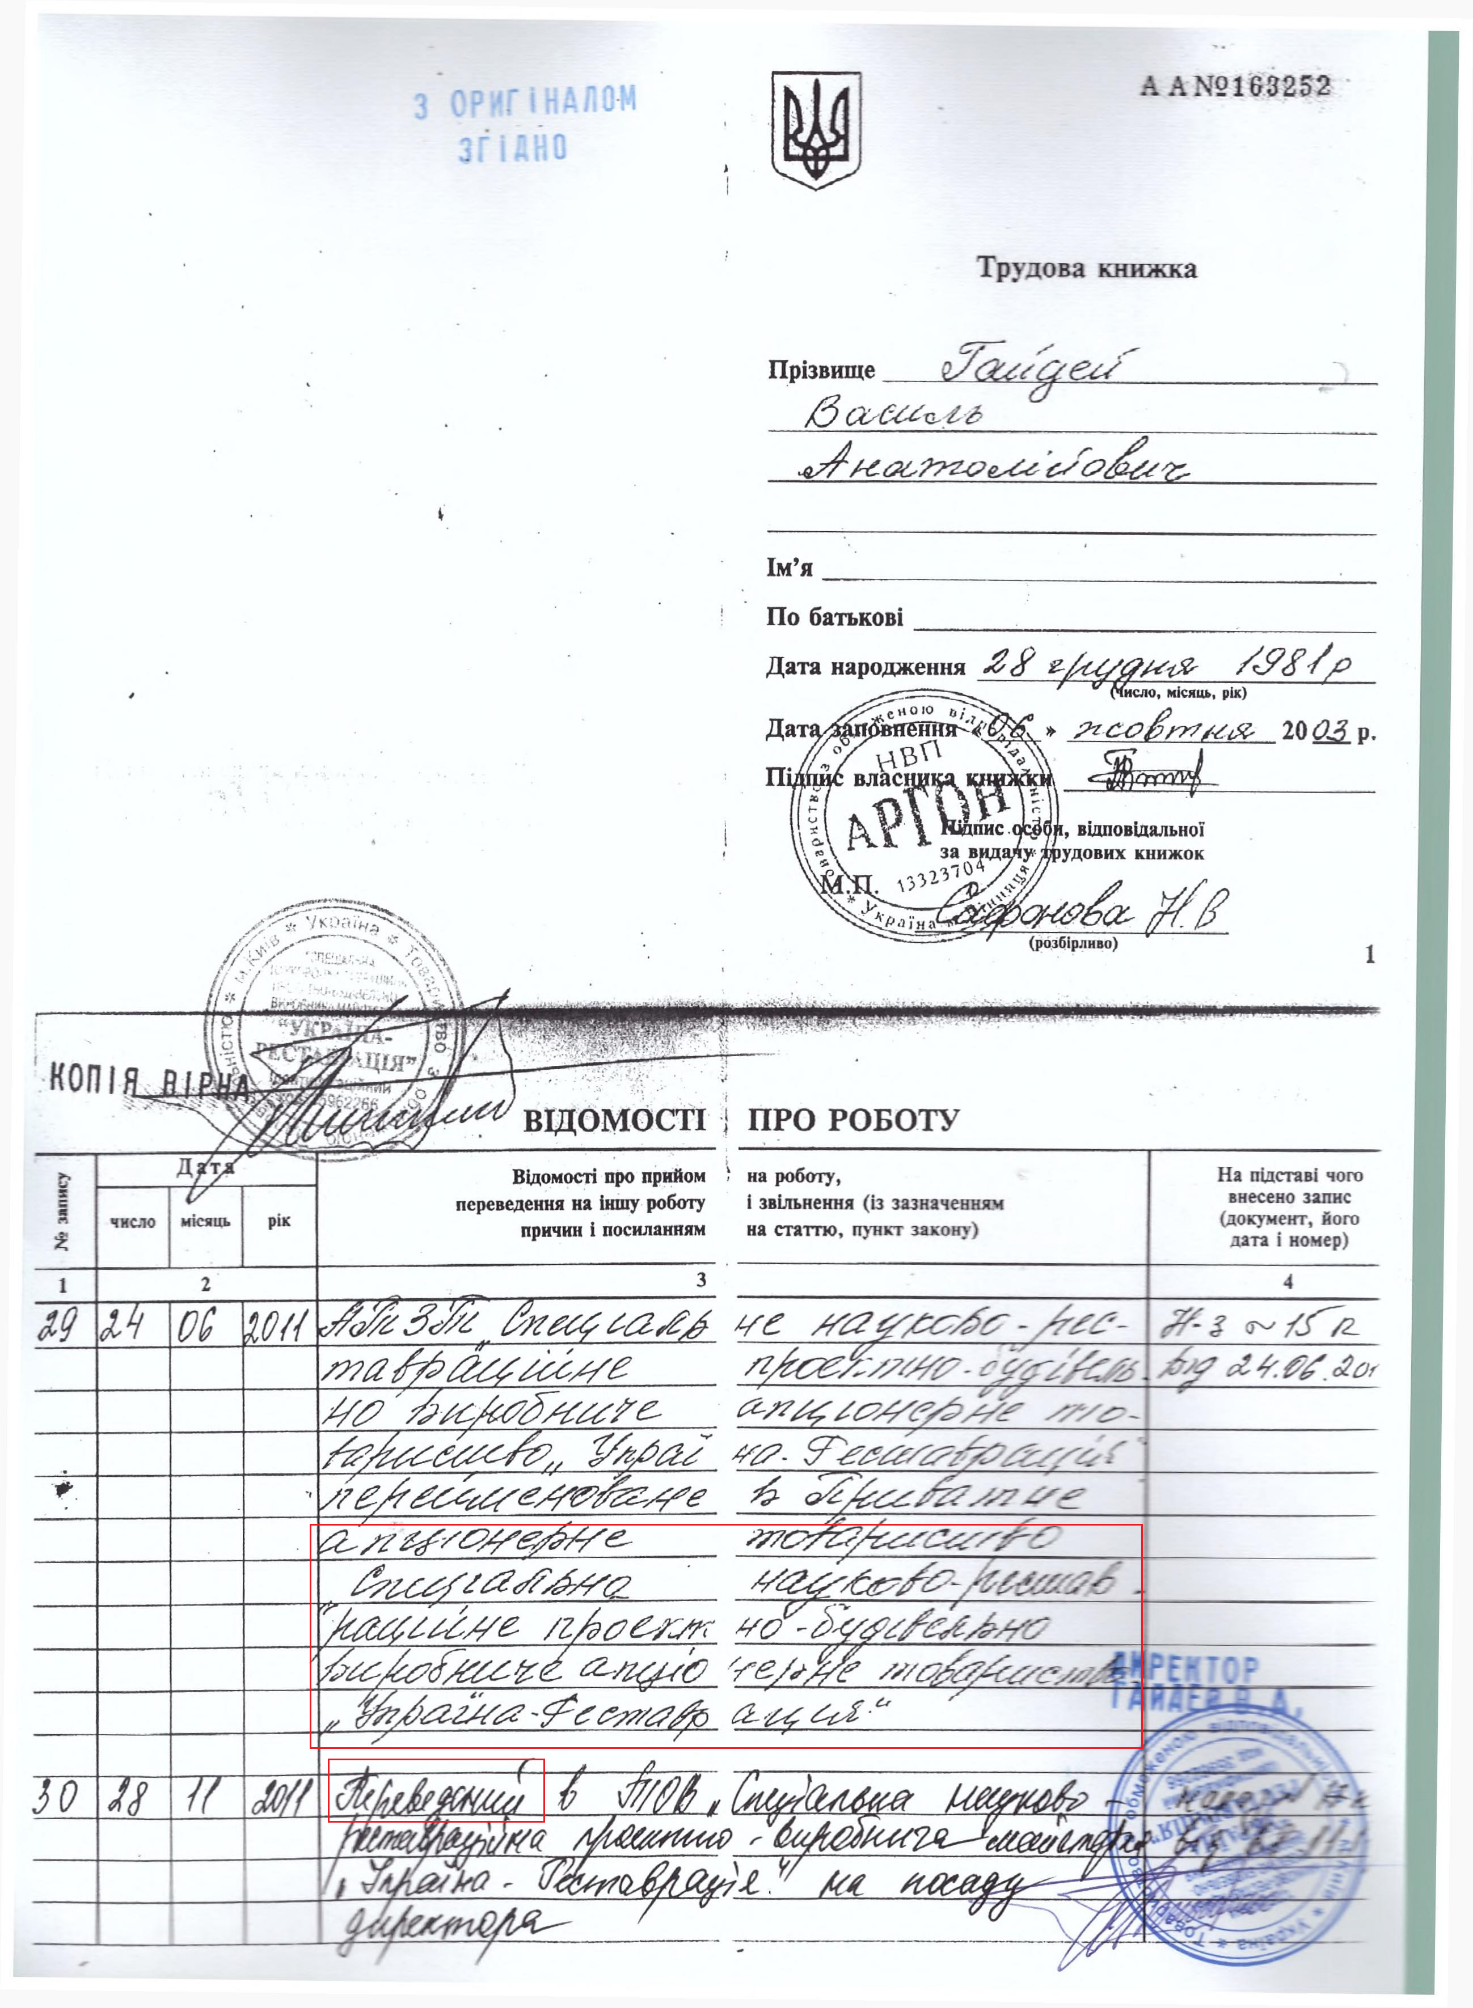 З ОРИГІНАЛОМ
ЗГІДНО
А А №163252
Трудова книжка
Прізвище Гайдей
Василь
Анатолійович
Ім’я
По батькові
Дата народження 28 грудня 1981р
(число, місяць, рік)
Дата заповнення «06» жовтня 2003 р.
Підпис власника книжки
Підпис особи, відповідальної
за видачу трудових книжок
М.П.
Сафонова Н.В
(розбірливо)
НВП
АРГОН
13323704
Україна
1
м.Київ * Україна * Товариство з
"УКРАЇНА-
РЕСТАВРАЦІЯ"
КОПІЯ ВІРНА
ВІДОМОСТІ ПРО РОБОТУ
№ запису
Дата
число місяць рік
Відомості про прийом на роботу,
переведення на іншу роботу і звільнення (із зазначенням
причин і посиланням на статтю, пункт закону)
На підставі чого
внесено запис
(документ, його
дата і номер)
1 2 3 4
29 24 06 2011 АТЗТ „Спеціальне науково-рес- Н-з ~ 15 к
тавраційне проектно-будівель- від 24.06.201
но виробниче акціонерне то-
вариство „Украї на-Реставрація"
перейменоване в Приватне
акціонерне товариство
„Спеціально науково-рестав-
раційне проектно-будівельно
виробниче акціонерне товариство
„Україна-Реставрація"
ДИРЕКТОР
ГАЙДЕЙ В.А.
30 28 11 2011 Переведений в ТОВ „Спеціальна науково-
реставраційна проектно-виробнича майстерня
„Україна-Реставрація" на посаду
директора